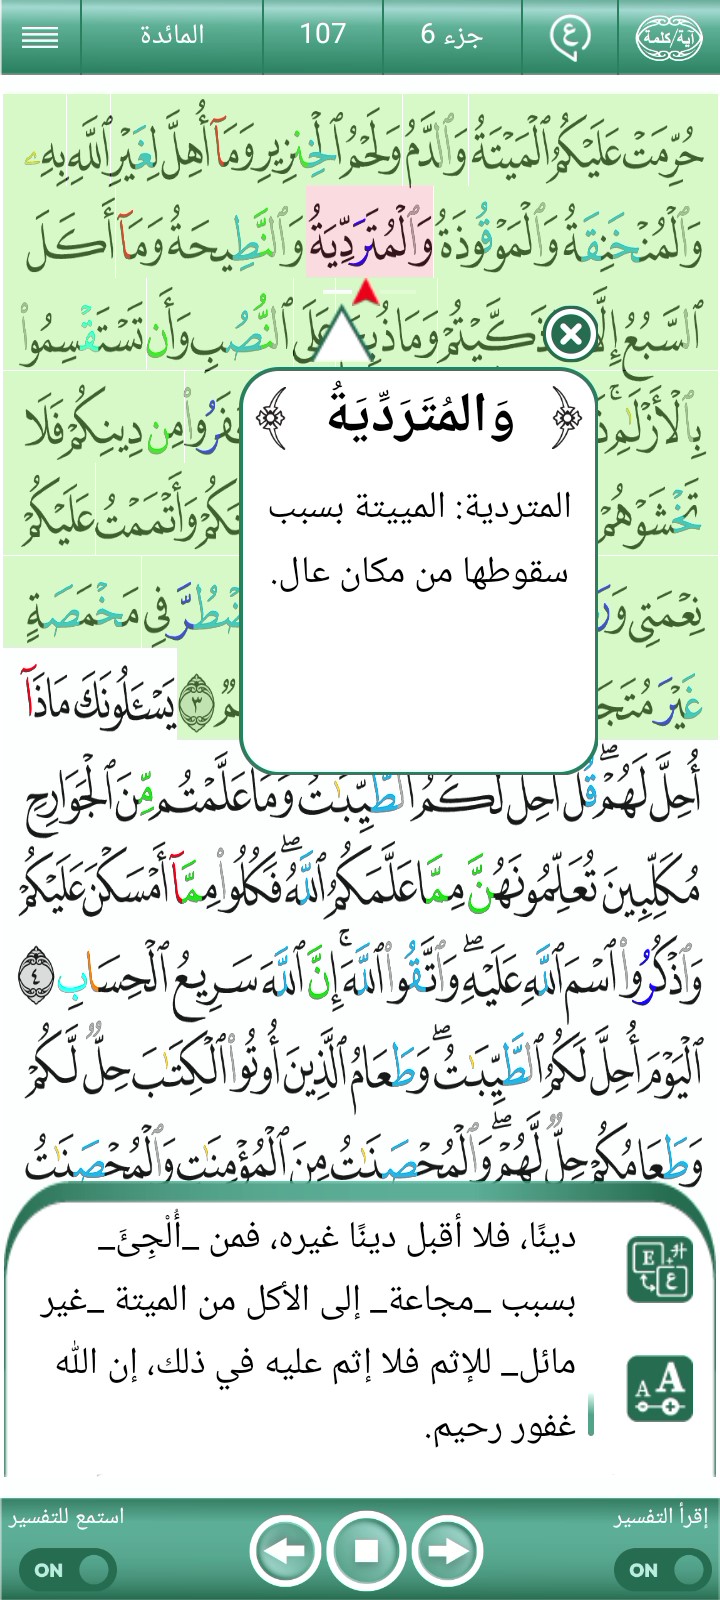 آية/كلمة
ع
جزء 6
107
المائدة
حُرِّمَتْ عَلَيْكُمُ ٱلْمَيْتَةُ وَٱلدَّمُ وَلَحْمُ ٱلْخِنزِيرِ وَمَآ أُهِلَّ لِغَيْرِ ٱللَّهِ بِهِۦ
وَٱلْمُنْخَنِقَةُ وَٱلْمَوْقُوذَةُ وَٱلْمُتَرَدِّيَةُ وَٱلنَّطِيحَةُ وَمَآ أَكَلَ
ٱلسَّبُعُ إِلَّا ذَكَّيْتُمْ وَمَا ذُبِحَ عَلَى ٱلنُّصُبِ وَأَن تَسْتَقْسِمُوا۟
بِٱلْأَزْلَٰمِ ۚ كَفَرُوا۟ مِن دِينِكُمْ فَلَا
تَخْشَوْهُمْ وَأَتْمَمْتُ عَلَيْكُمْ
نِعْمَتِى ٱضْطُرَّ فِى مَخْمَصَةٍ
غَيْرَ ٣ يَسْـَٔلُونَكَ مَاذَآ
وَالمُتَرَدِّيَةُ
المتردية: المييتة بسبب
سقوطها من مكان عال.
أُحِلَّ لَهُمْ ۖ قُلْ أُحِلَّ لَكُمُ ٱلطَّيِّبَٰتُ وَمَا عَلَّمْتُم مِّنَ ٱلْجَوَارِحِ
مُكَلِّبِينَ تُعَلِّمُونَهُنَّ مِمَّا عَلَّمَكُمُ ٱللَّهُ ۖ فَكُلُوا۟ مِمَّآ أَمْسَكْنَ عَلَيْكُمْ
وَٱذْكُرُوا۟ ٱسْمَ ٱللَّهِ عَلَيْهِ ۖ وَٱتَّقُوا۟ ٱللَّهَ ۚ إِنَّ ٱللَّهَ سَرِيعُ ٱلْحِسَابِ ٤
ٱلْيَوْمَ أُحِلَّ لَكُمُ ٱلطَّيِّبَٰتُ ۖ وَطَعَامُ ٱلَّذِينَ أُوتُوا۟ ٱلْكِتَٰبَ حِلٌّ لَّكُمْ
وَطَعَامُكُمْ حِلٌّ لَّهُمْ ۖ وَٱلْمُحْصَنَٰتُ مِنَ ٱلْمُؤْمِنَٰتِ وَٱلْمُحْصَنَٰتُ
دينًا، فلا أقبل دينًا غيره، فمن _أُلْجِئَ_
بسبب _مجاعة_ إلى الأكل من الميتة _غير
مائل_ للإثم فلا إثم عليه في ذلك، إن الله
غفور رحيم.
إقرأ التفسير
ON
استمع للتفسير
ON